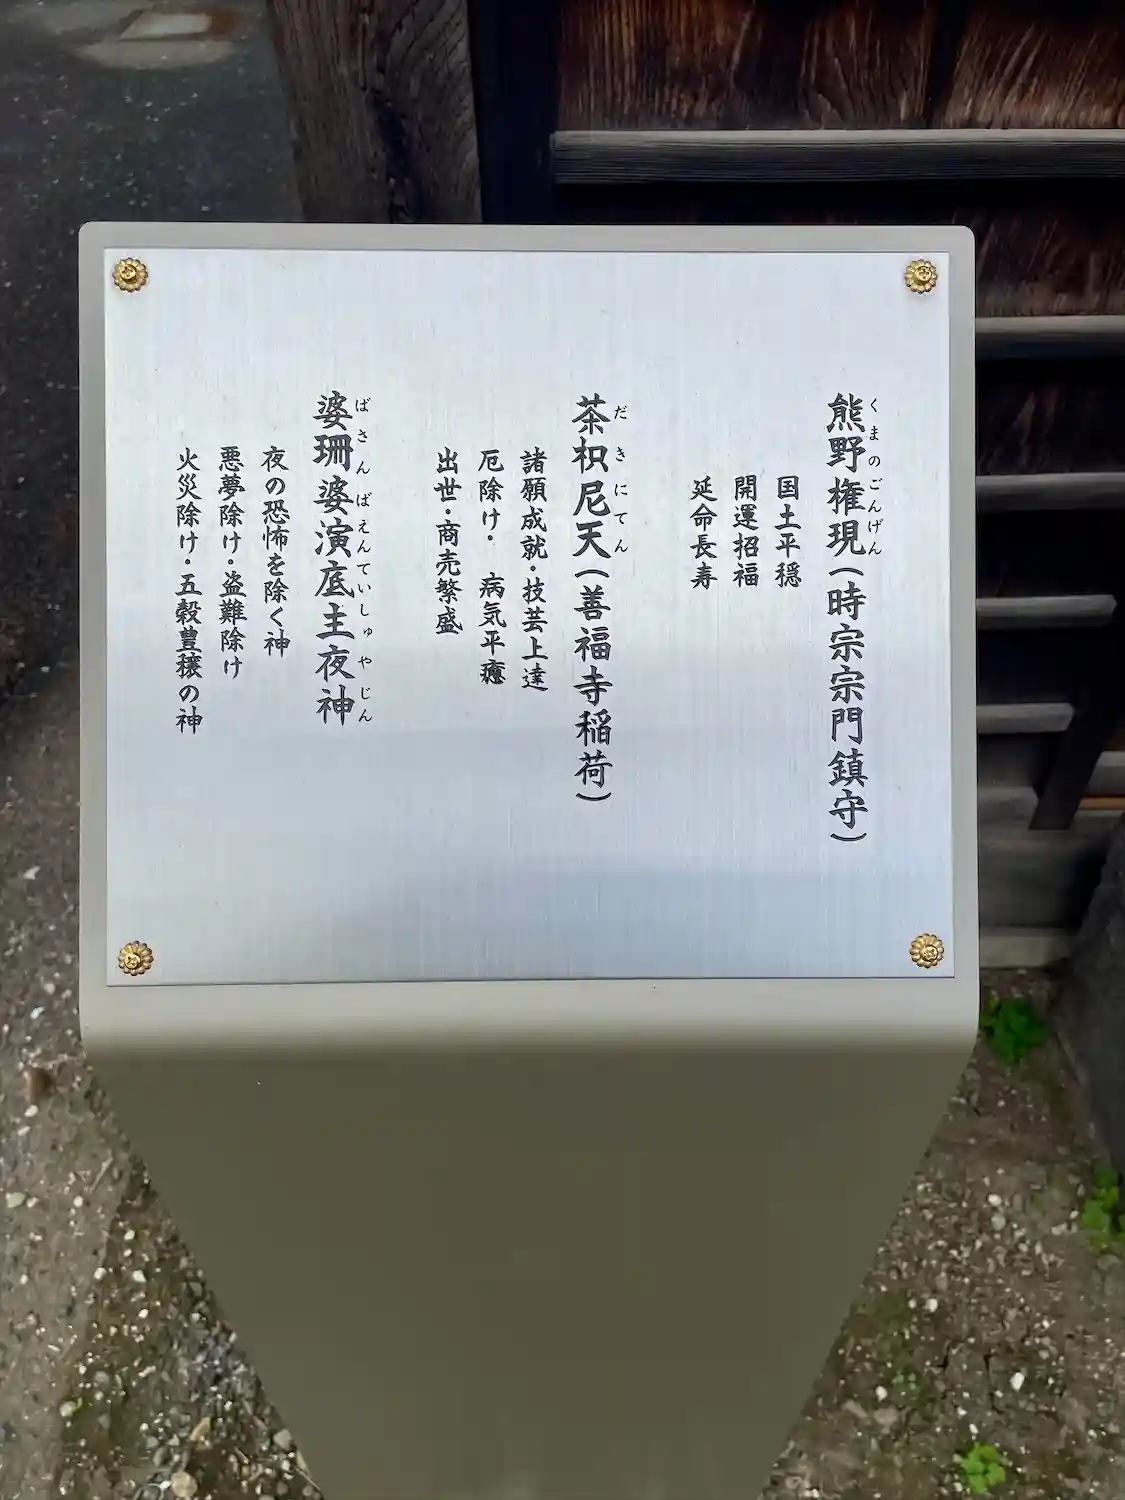 熊野権現(時宗宗門鎮守)
くまのごんげん
国土平穏
開運招福
延命長寿
茶枳尼天(善福寺稲荷)
だきにてん
諸願成就・技芸上達
厄除け・ 病気平癒
出世・商売繁盛
婆珊婆演底主夜神
ばさんばえんていしゅやじん
夜の恐怖を除く神
悪夢除け・盗難除け
火災除け・五穀豊穣の神